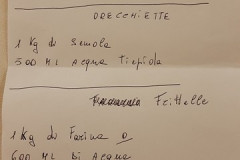 ORECCHIETTE
1 Kg di Semola
500 ML Acqua Tiepida
Frittelle
1 Kg di Farina 0
600 ML di Acqua